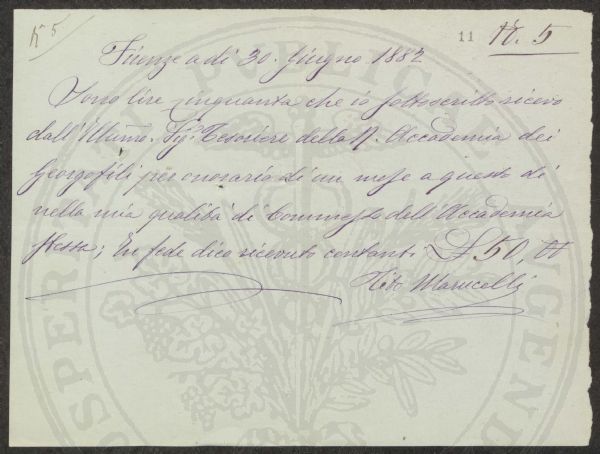 N° 5
11 N. 5
Firenze a dì 30. Giugno 1882
Sono lire cinquanta che io sottoscritto ricevo
dall'Illumo. Sigr. Tesoriere della R. Accademia dei
Georgofili per onorario di un mese a questo dì
nella mia qualità di Commesso dell'Accademia
stessa; In fede dico ricevuto contanti £ 50, 00
Tito Marucelli
PROSPER PUBLICAE AUGENDAE